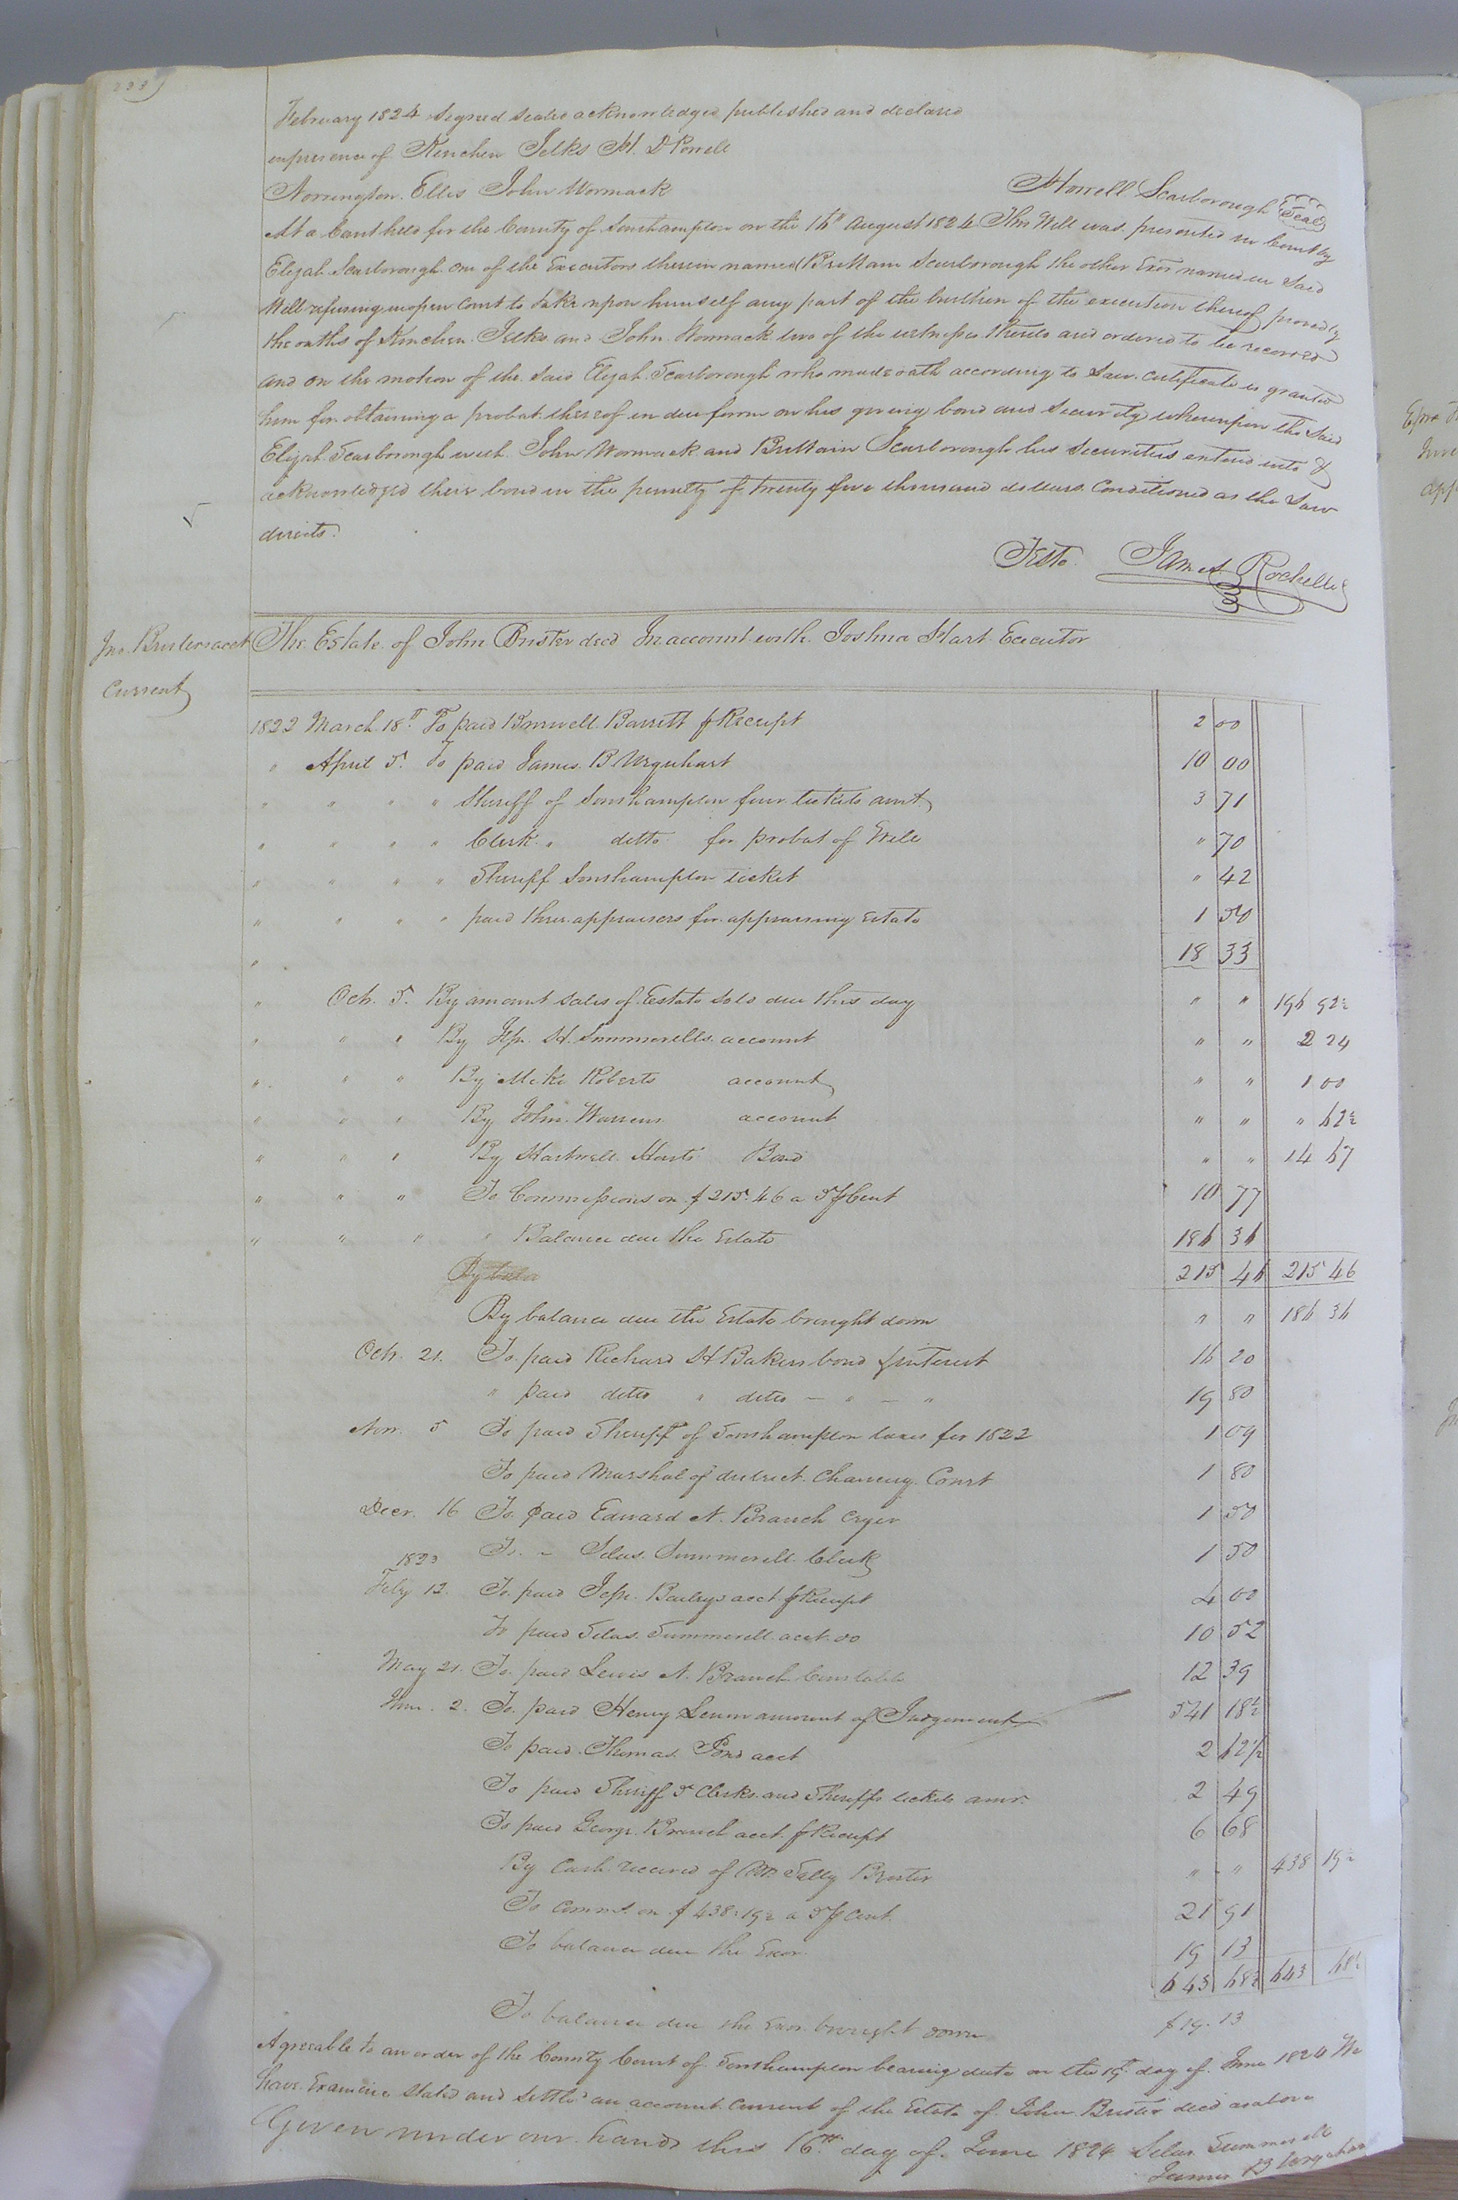 February 1824 signed sealed acknowledged published and declared
in presence of Kinchen Jelks M. D Powell
Norrington. Ellis John Womack
Howell Scarborough Seal
At a Court held for the County of Southampton on the 16th August 1824 This Will was presented in Court by
Elijah Scarborough one of the Executors therein named Brittain Scarborough the other Exor named in said
Will refusing in open Court to take upon himself any part of the burthen of the execution thereof proved by
the oaths of Kinchen Jelks and John Womack two of the witnesses thereto and ordered to be recorded
and on the motion of the said Elijah Scarborough who made oath according to Law certificate is granted
him for obtaining a probat thereof in due form on his giving bond and security whereupon the said
Elijah Scarborough with John Womack and Brittain Scarborough his securities entered into &
acknowledged their bond in the penalty of twenty five thousand dollars conditioned as the Law
directs.
Teste James Rochelle
Jno. Bristers acct
Current
The Estate of John Brister decd In account with Joshua Hart Executor
1822 March 18th To paid Burwell Barrett Receipt 2 00
" April 5. To paid James B Urquhart 10 00
" " " " Sheriff of Southampton four tickets amt 3 71
" " " " Clerk " ditto for probat of Will " 70
" " " " Sheriff Southampton ticket " 42
" " " " paid three appraisers for appraising Estate 1 50
" 18 33
" Octr. 5. By amount sales of Estate sold due this day " " 196 92½
" " " By Jesse H. Summerells account " " 2 24
" " " By Mike Roberts account " " 1 00
" " " By John Warrens account " " " 62½
" " " By Hartwell Harts Bond " " 14 67
" " " To Commissions on $215.46 a 5 Cent 10 77
" " " " Balance due the Estate 186 36
215 46 215 46
By balance due the Estate brought down " " 186 36
Octr. 21. To paid Richard H Bakers bond interest 16 20
" paid ditto " ditto – " – " 19 80
Nov. 5 To paid Sheriff of Southampton taxes for 1822 1 09
To paid Marshal of district Chancery Court 1 80
Decr. 16 To paid Edward N. Branch Cryer 1 50
To – Silas Summerell Clerk 1 50
1823
Feby 12. To paid Jesse Baileys acct Receipt 4 00
To paid Silas Summerell acct. do 10 52
May 21. To paid Lewis N. Branch Constable 12 39
June. 2. To paid Henry amount of Judgement 541 18½
To paid Thomas Pond acct 2 62½
To paid Sheriff 5 Clerks and Sheriffs tickets amt. 2 49
To paid George Branch acct. Receipt 6 68
By Cash received of Sally Brister " " 438 19½
To comms. on $438.19½ a 5 Cent. 21 91
To balance due the Exor. 19 13
643 68½ 643 68½
To balance due the Exor. brought down $19.13
Agreeable to an order of the County Court of Southampton bearing date on the 15th day of June 1824 We
have Examined stated and settled an account current of the Estate of John Brister decd as above
Given under our hands this 16th day of June 1824 Silas Summerell
James B Urquhart